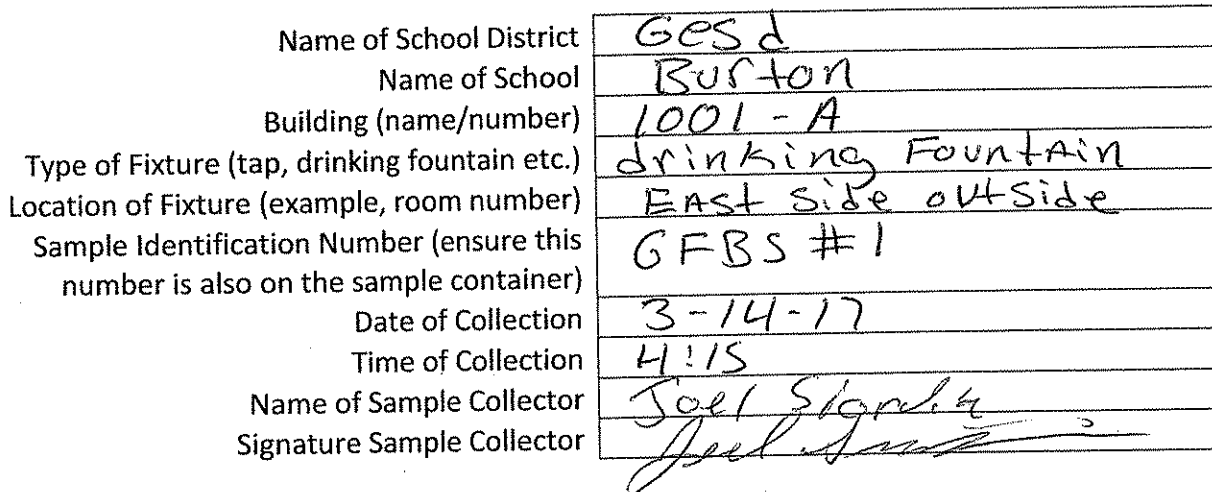 Name of School District Gesd
Name of School Burton
Building (name/number) 1001 - A
Type of Fixture (tap, drinking fountain etc.) drinking FountAin
Location of Fixture (example, room number) EAst Side outside
Sample Identification Number (ensure this
number is also on the sample container) GFBS #1
Date of Collection 3-14-17
Time of Collection 4:15
Name of Sample Collector Joel
Signature Sample Collector Joel